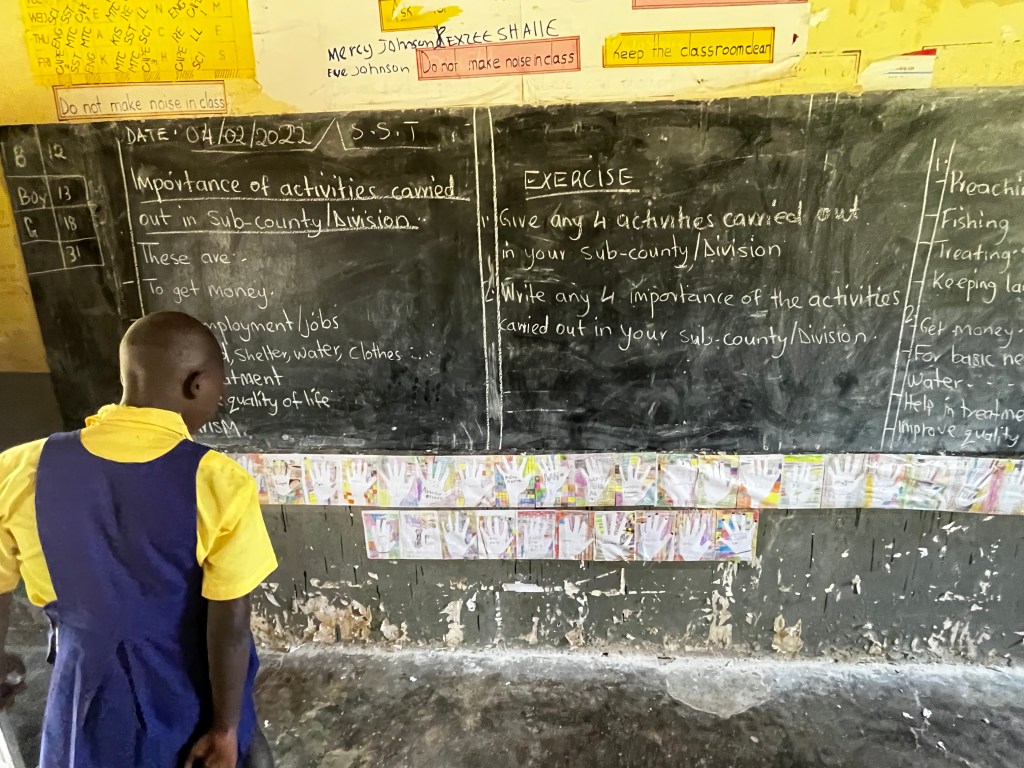 WED
THU
FRI
Mercy Johnson
REXZEE SHALLE
Eve Johnson
Do not make noise in class
Keep the classroom clean
Do not make noise in class
DATE: 04/02/2022 / S.S.T
B 12
Boy 13
G 18
31
Importance of activities carried
out in Sub-county/Division
These are:-
To get money.
mployment/jobs
, shelter, water, clothes
atment
quality of life
EXERCISE
1. Give any 4 activities carried out
in your Sub-county/Division
2. Write any 4 importance of the activities
carried out in your Sub-county/Division.
1.
Preachin
Fishing
Treating
Keeping la
2.
Get money
For basic ne
Water
Help in treatme
Improve quality